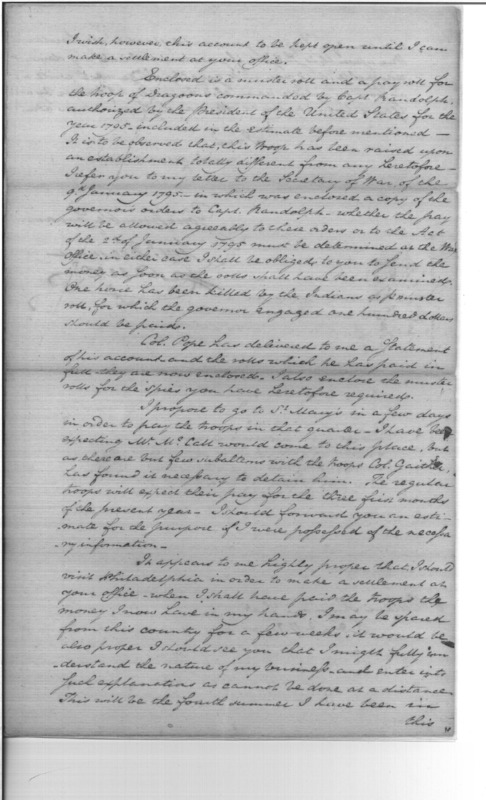 I wish, however, this account to be kept open until I can
make a settlement at your office.
Enclosed is a muster roll and a pay roll for
the troop of Dragoons commanded by Capt. Randolph.
authorized by the President of the United States for the
year 1795 – included in the estimate before mentioned –
It is to be observed that, this troop has been raised upon
an establishment totally different from any heretofore –
I refer you to my letter to the Secretary of War, of the
9th January 1795 – in which was enclosed a copy of the
governor's orders to Capt. Randolph – whether the pay
will be allowed agreeably to these orders or to the Act
of the 2d of January 1795 must be determined at the War
office, in either case I shall be obliged to you to send the
money as soon as the rolls shall have been examined.
One horse has been killed by the Indians as p muster
roll, for which the governor engaged one hundred dollars
should be paid.
Col. Pope has delivered to me a Statement
of his account and the rolls which he has paid in
full they are now enclosed. I also enclose the muster
rolls for the spies you have heretofore required.
I propose to go to St. Mary's in a few days
in order to pay the troops in that quarter – I have been
expecting Mr. McCall would come to this place, but
as there are but few subalterns with the troops Col. Gaither
has found it necessary to detain him. The regular
troops will expect their pay for the three first months
of the present year – I should forward you an esti-
mate for the purpose if I were possessed of the necessa
ry information –
It appears to me highly proper that I should
visit Philadelphia in order to make a settlement at
your office – when I shall have paid the troops the
money I now have in my hands, I may be spared
from this country for a few weeks, it would be
also proper I should see you that I might fully un
derstand the nature of my business – and enter into
such explanations as cannot be done at a distance
This will be the fourth summer I have been in
this